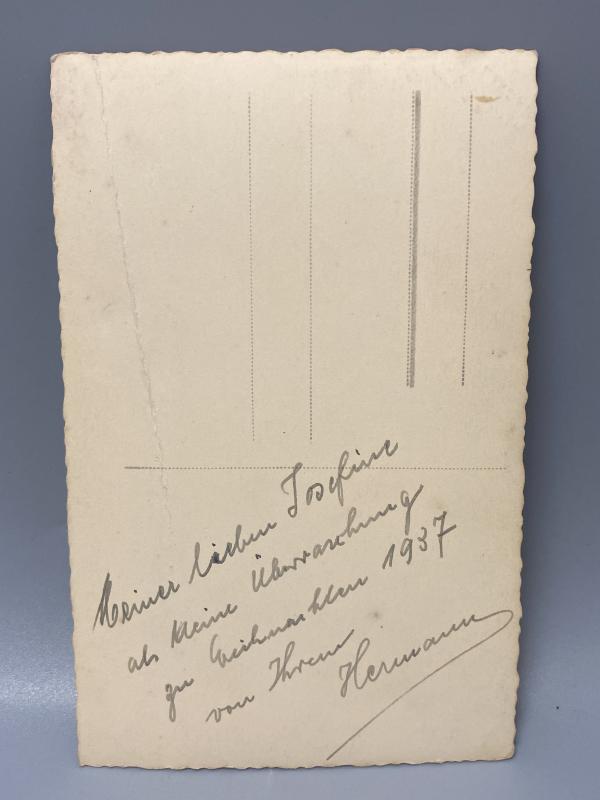 Meiner lieben Josefine
als kleine Überraschung
zu Weihnachten 1937
von Ihrem
Hermann